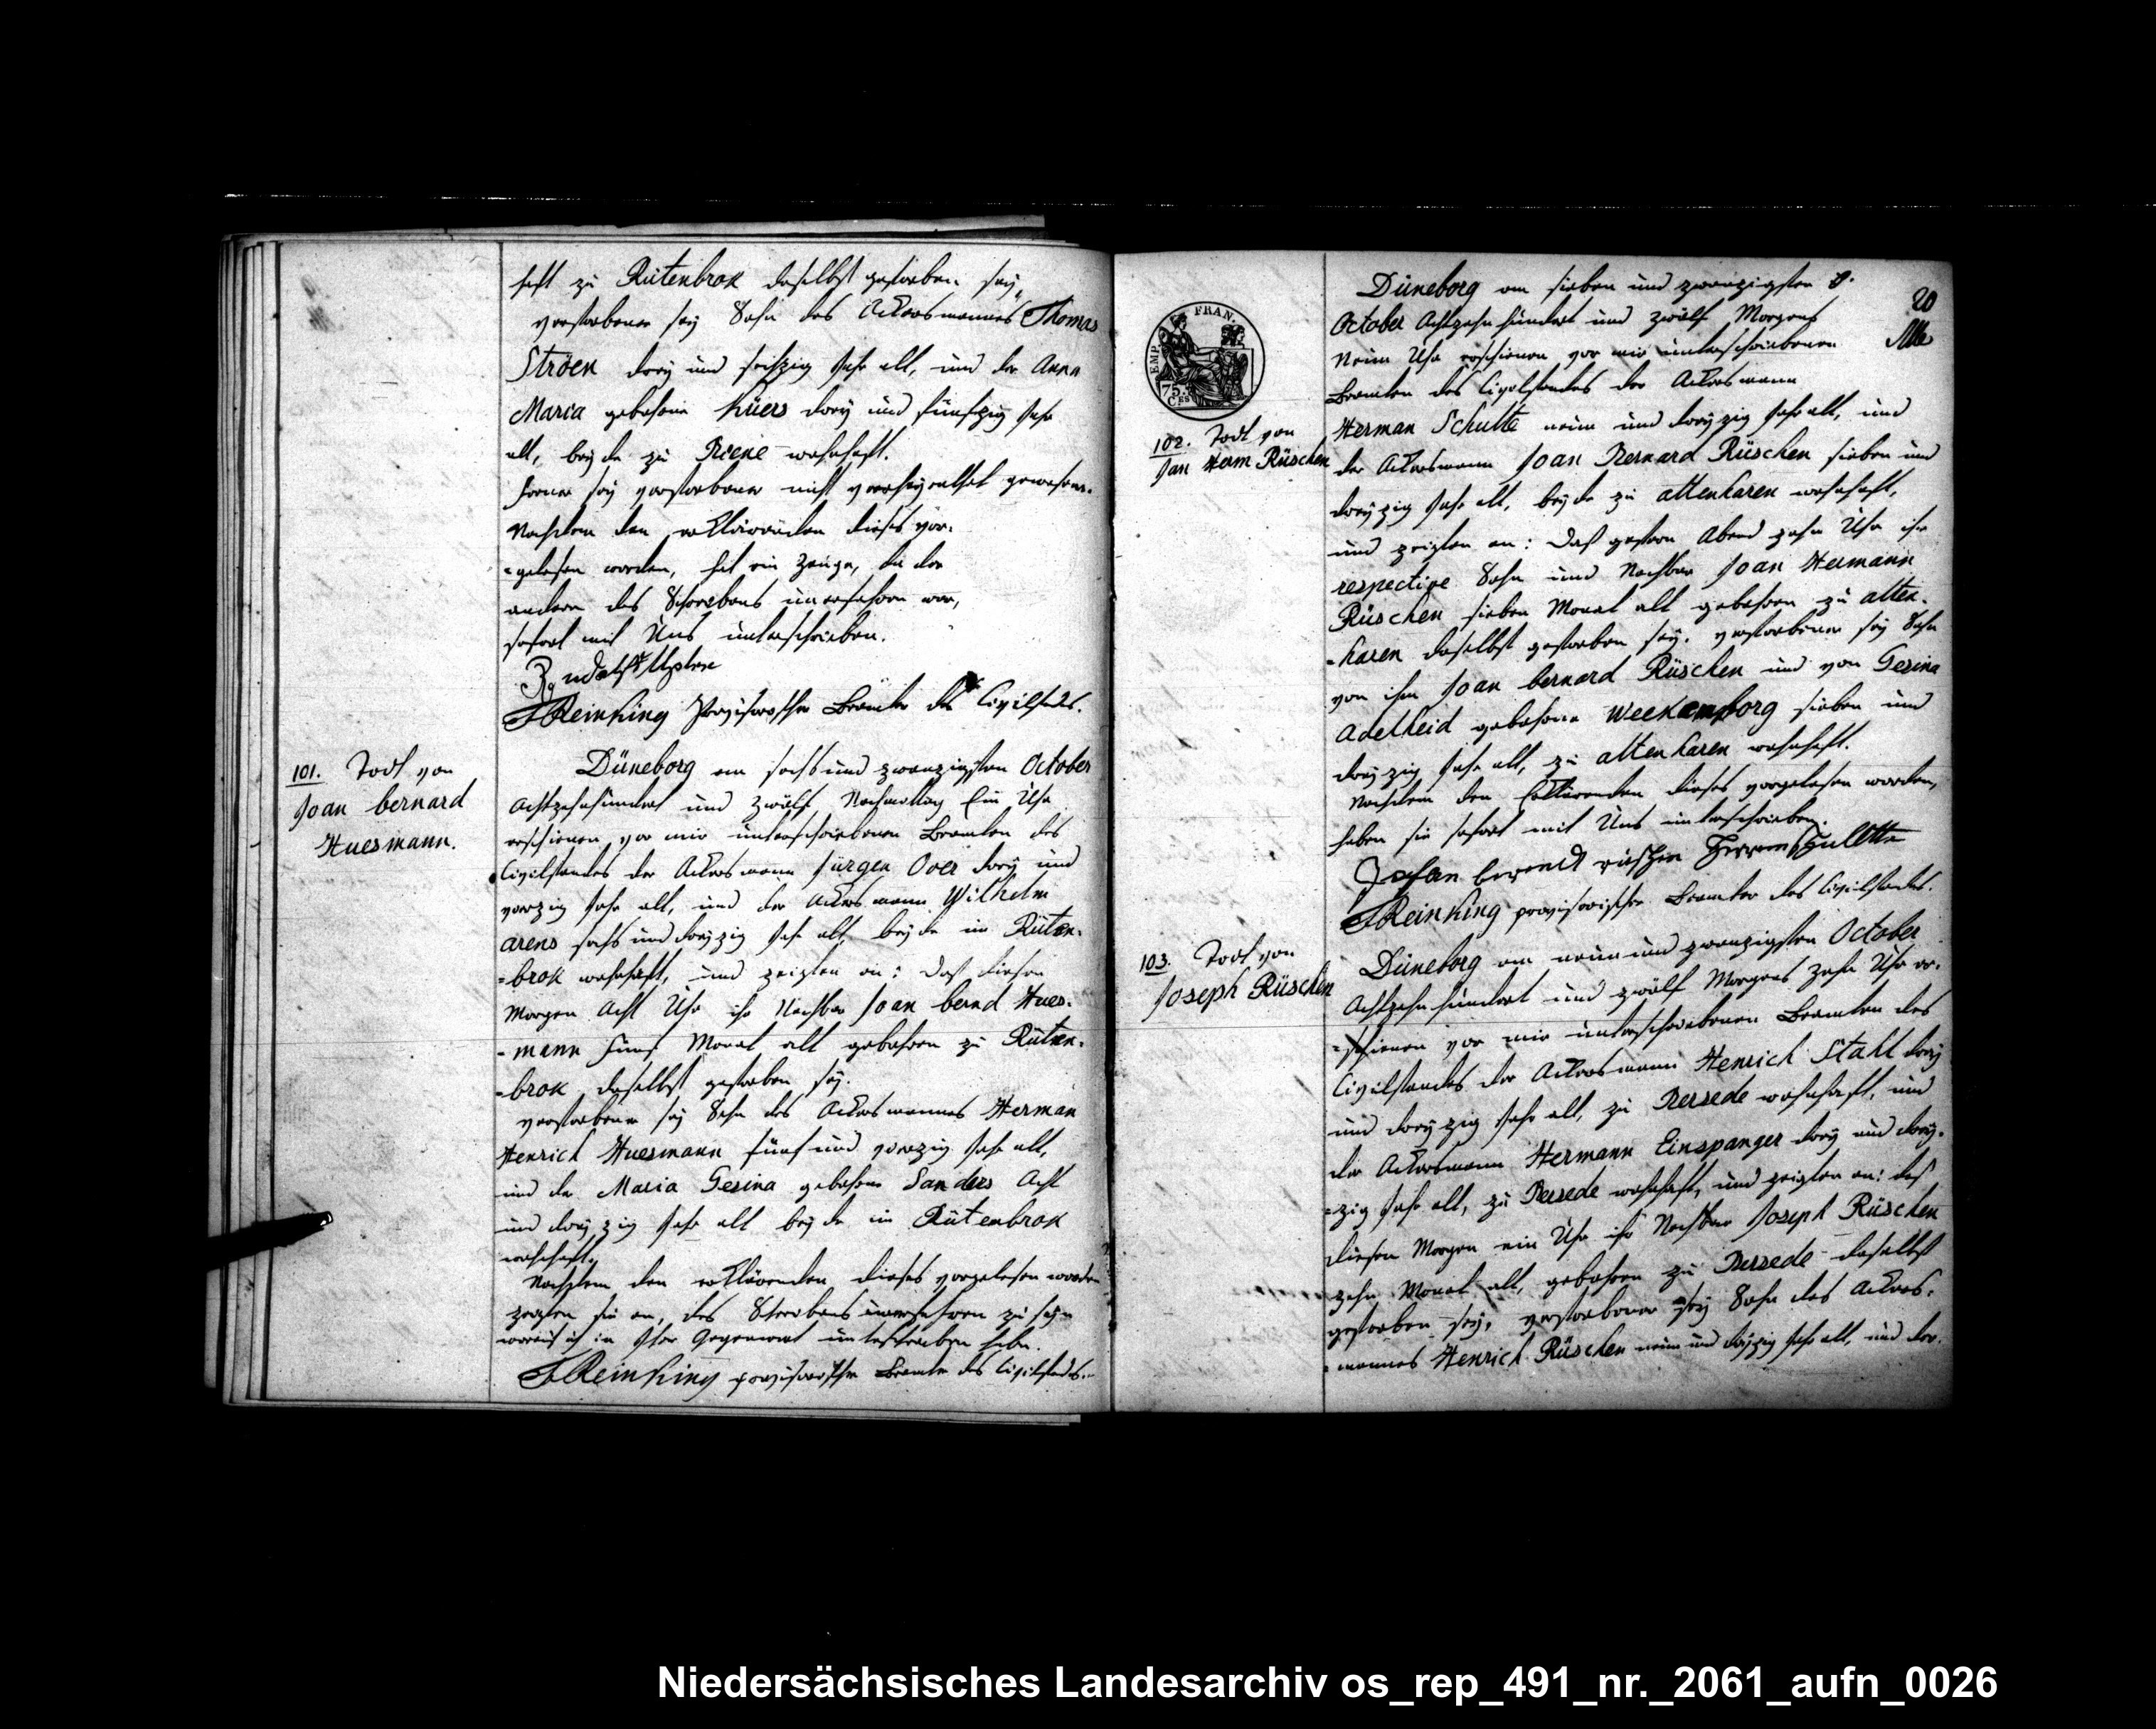 haft zu Rütenbrok daselbst gestorben sey,
verstorbener sey Sohn des Ackersmannes Thomas
Ströen drey und sechzig Jahr alt, und der Anna
Maria gebohrne Hüers drey und fünfzig Jahr
alt, beyde zu wohnhaft.
ferner sey verstorbener nicht verheyrathet gewesen.
Nachdem den erklärenden dieses vor-
=gelesen worden, hat ein Zeuge, da der
andere des Schreibens unerfahren war,
sofort mit Uns unterschrieben.
Rudolf
Reinking Provisorischer Beamter des Civilstandes.
101. Todt von
Joan bernard
Huesmann.
Düneborg am sechs und zwanzigsten October
Achtzehnhundert und zwölf, Nachmittag Ein Uhr
erschienen vor mir unterschriebenen Beamten des
Civilstandes der Ackersmann Jürgen Over drey und
vierzig Jahr alt, und der Ackersmann Wilhelm
Arens sechs und dreyzig Jahr alt, beyde in Rüten-
=brok wohnhaft, und zeigten an: daß diesen
Morgen Acht Uhr ihr Nachbar Joan bernd Hues-
=mann fünf Monat alt gebohren zu Rüten-
=brok daselbst gestorben sey.
verstorbener sey Sohn des Ackersmannes Herman
Henrich Huesmann fünf und vierzig Jahr alt,
und der Maria Gesina gebohrne Sanders Acht
und dreyzig Jahr alt beyde in Rütenbrok
wohnhaft.
Nachdem den erklärenden dieses vorgelesen worden
zeigten sie an, des Schreibens unerfahren zu seyn
worauf ich in Ihrer Gegenwart unterschrieben habe.
Reinking provisorischer Beamter des Civilstandes.
20
EMP. FRAN.
75.
CES
102. Todt von
Jan Herm Rüschen
Düneborg am sieben und zwanzigsten
October Achtzehnhundert und zwölf Morgens
Neun Uhr erschienen vor mir unterschriebenen
Beamten des Civilstandes der Ackersmann
Herman Schulte neun und dreyzig Jahr alt, und
der Ackersmann Joan Bernard Rüschen sieben und
dreyzig Jahr alt, beyde zu altenharen wohnhaft,
und zeigten an: daß gestern Abend zehn Uhr ihr
respective Sohn und Nachbar Joan Hermann
Rüschen sieben Monat alt gebohren zu alten-
=haren daselbst gestorben sey. verstorbener sey Sohn
von ihm Joan bernard Rüschen und von Gesina
Adelheid gebohrne Weekamborg sieben und
dreyzig Jahr alt, zu altenharen wohnhaft.
Nachdem den Erklärenden dieses vorgelesen worden,
haben sie sofort mit Uns unterschrieben.
Johan berendt rüschen Herrem Schullte
Reinking provisorischer Beamter des Civilstandes.
103. Todt von
Joseph Rüschen
Düneborg am neun und zwanzigsten October
Achtzehnhundert und zwölf Morgens zehn Uhr er-
=schienen vor mir unterschriebenen Beamten des
Civilstandes der Ackersmann Henrich Stahl drey
und dreyzig Jahr alt, zu Bersede wohnhaft, und
der Ackersmann Hermann Einspanger drey und drey-
=zig Jahr alt, zu Bersede wohnhaft, und zeigten an: daß
diesen Morgen ein Uhr ihr Nachbar Joseph Rüschen
zehn Monat alt, gebohren zu Bersede daselbst
gestorben sey, verstorbener sey Sohn des Ackers-
=mannes Henrich Rüschen neun und dreyzig Jahr alt, und der
Niedersächsisches Landesarchiv os_rep_491_nr._2061_aufn_0026